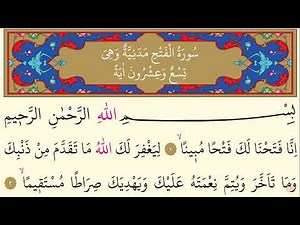 سُورَةُ الْفَتْحِ مَدَنِيَّةٌ وَهِيَ
تِسْعٌ وَعِشْرُونَ اٰيَةً
بِسْمِ اللّٰهِ الرَّحْمٰنِ الرَّحِيمِ
اِنَّا فَتَحْنَا لَكَ فَتْحًا مُبِينًاۙ ١ لِيَغْفِرَ لَكَ اللّٰهُ مَا تَقَدَّمَ مِنْ ذَنْبِكَ
وَمَا تَاَخَّرَ وَيُتِمَّ نِعْمَتَهُ عَلَيْكَ وَيَهْدِيَكَ صِرَاطًا مُسْتَقِيمًاۙ ٢